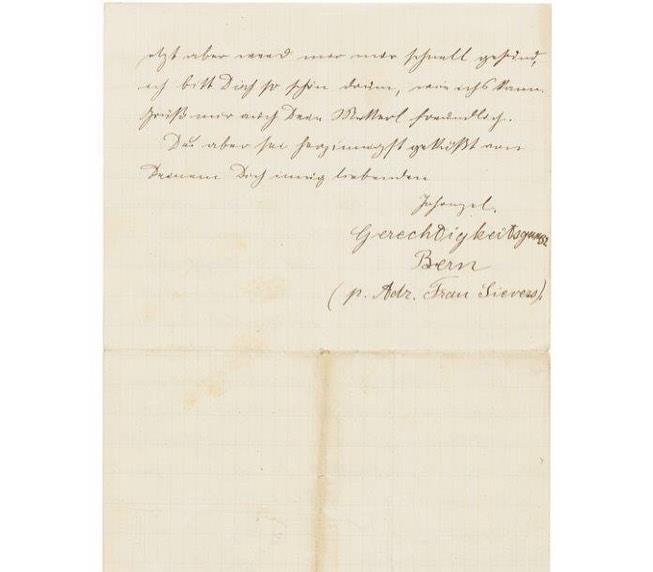 etzt aber werd mir nur schnell gesund,
ich bitt Dich so schön drum, wie ichs kann.
Grüß mir auch Dein Mutterl freundlich.
Du aber sei herzinnigst geküßt von
Deinem Dich innig liebenden
Johonzel.
Gerechtigkeitsgasse 32
Bern
(p. Adr. Frau Sievers).